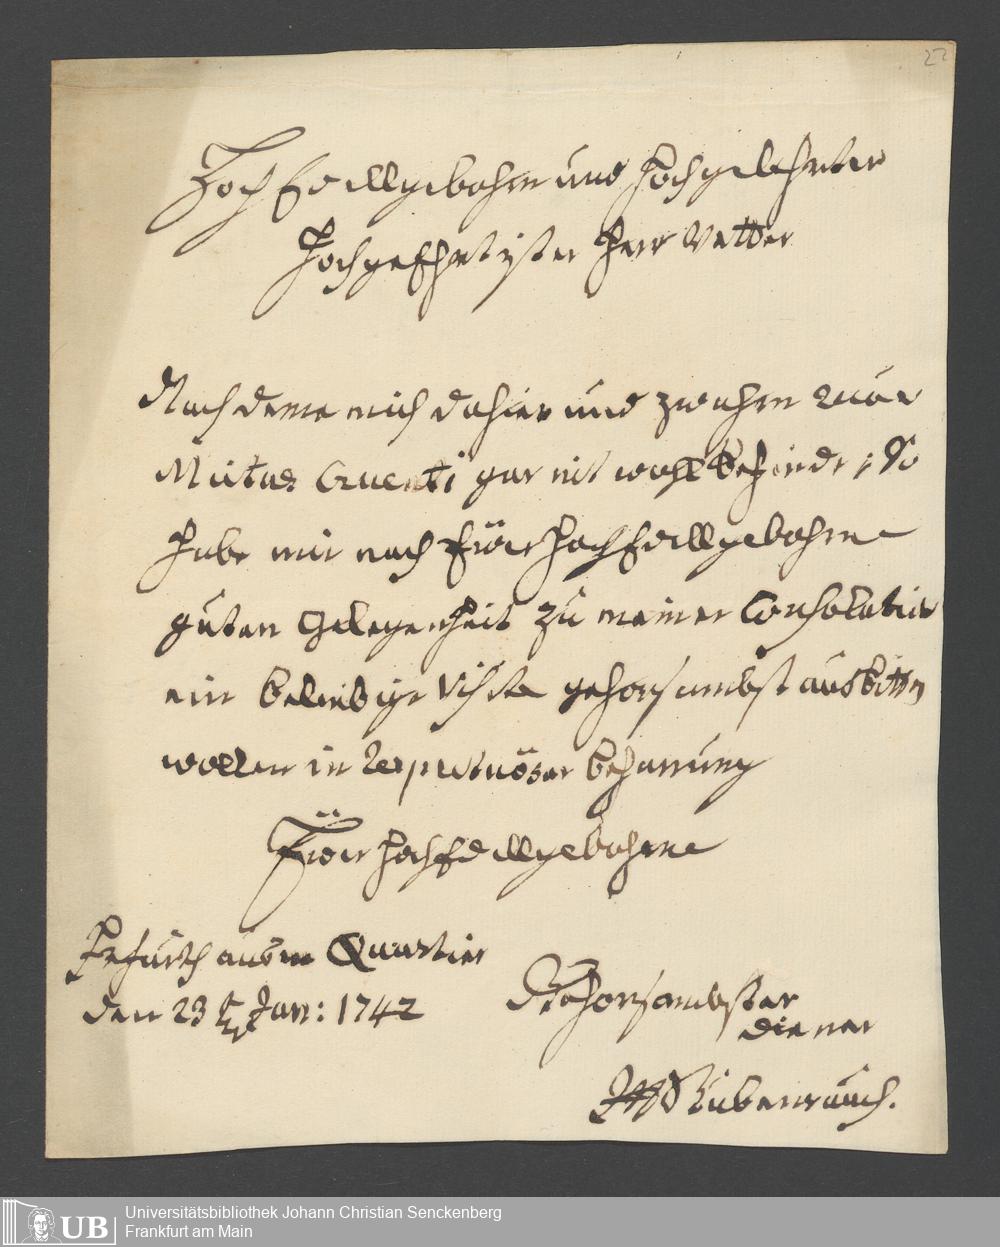 22
Hoch Edellgebohrn und Hochgelehrter
Hochgeehrtister Herr Vetter
Nach deme mich dahier und zwahrn
gar nit wohl befinde, So
habe mir nach Eüer HochEdellgebohrne
guten Gelegenheit zu meiner Consolation
ein beliebige Visite gehorsambst ausbitten
wollen in respectuöser beharrung
Eüer HochEdellgebohrne
ausm Quartier
den 23 Jan: 1742
Gehorsambster
diener
Stubenrauch.
UB
Universitätsbibliothek Johann Christian Senckenberg
Frankfurt am Main